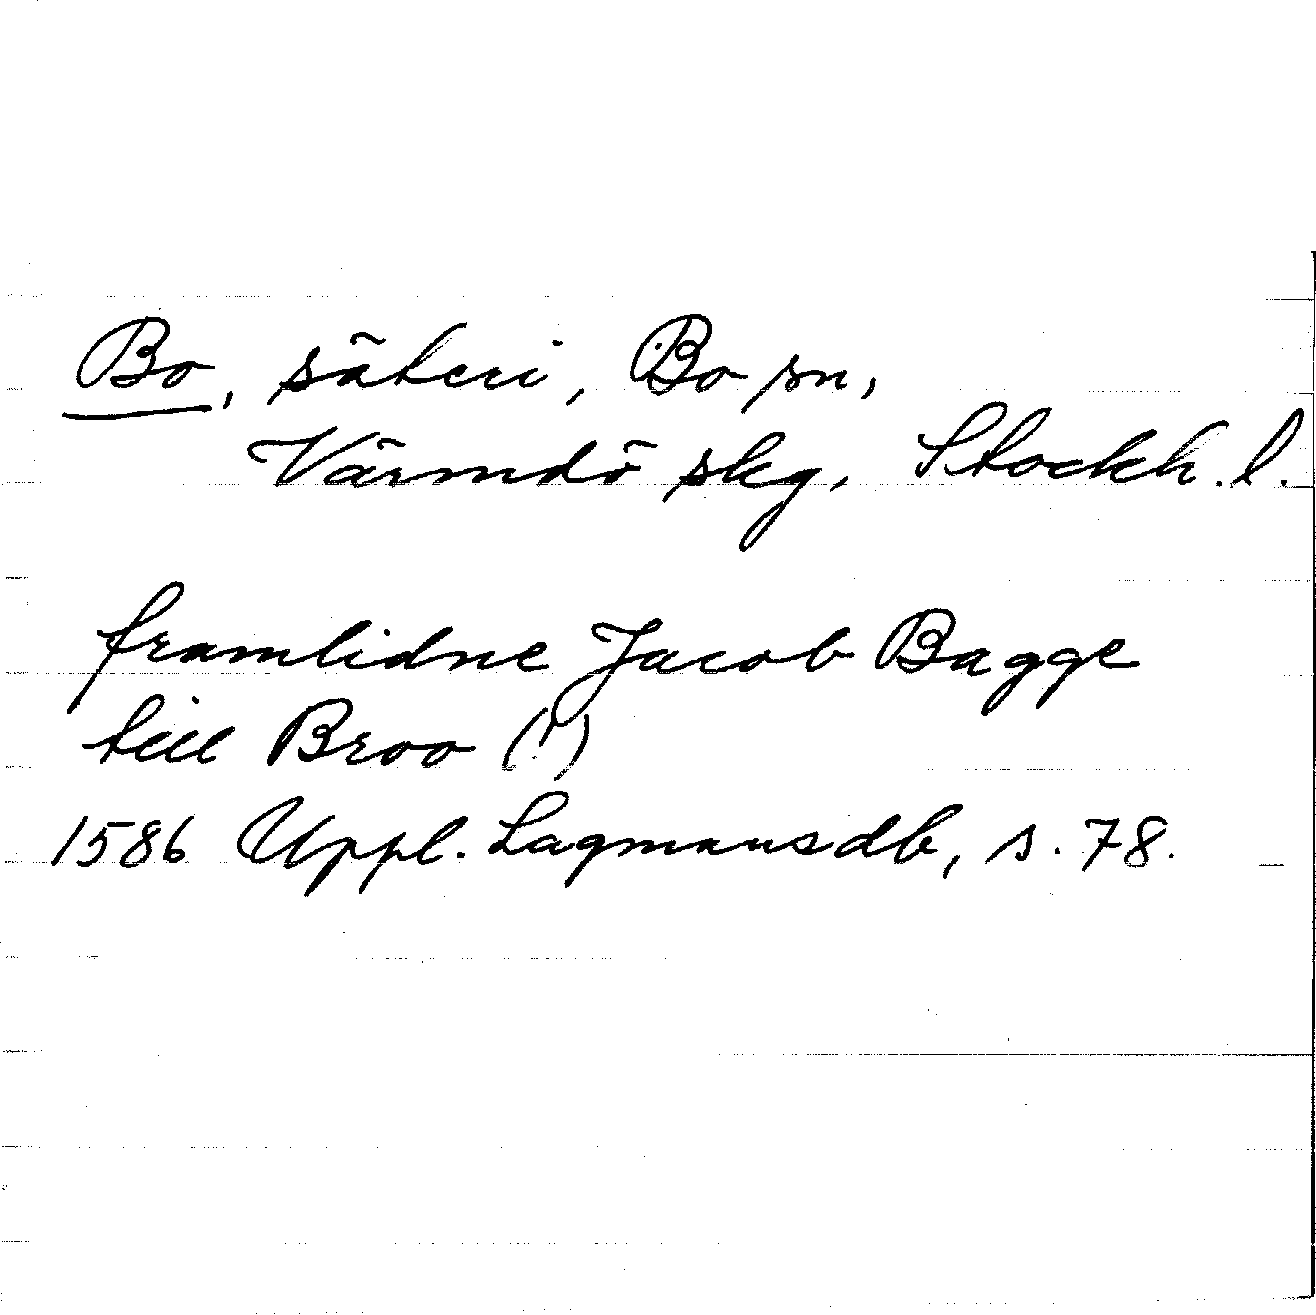 Bo, säteri, Bo sn,
Värmdö skg, Stockh. l.
framlidne Jacob Bagge
till Broo (!)
1586 Uppl. Lagmansdb, s. 78.